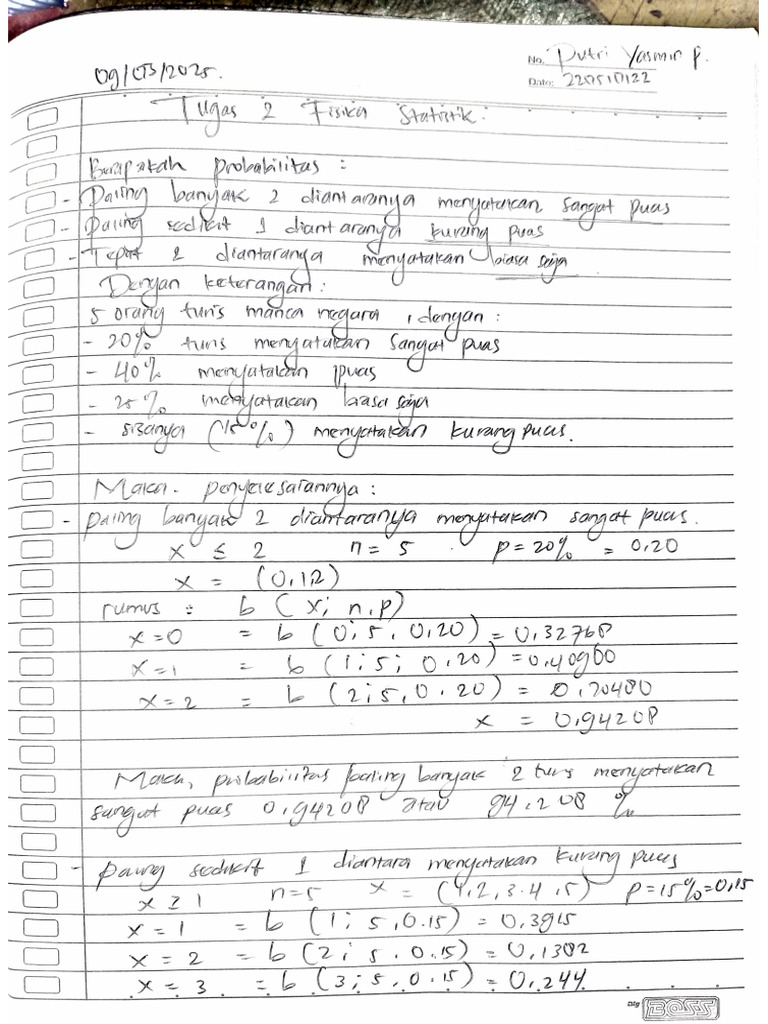 09/03/2025.
No. Putri Yasmin P.
Date: 2205101122
Tugas 2 Fisika Statistik.
Berapakah probabilitas :
- Paling banyak 2 diantaranya menyatakan sangat puas
- Paling sedikit 1 diantaranya kurang puas
- Tepat 2 diantaranya menyatakan biasa saja
Dengan keterangan :
5 orang turis manca negara , dengan :
- 20% turis menyatakan sangat puas
- 40% menyatakan puas
- 25% menyatakan biasa saja
- sisanya (15%) menyatakan kurang puas.
Maka. penyelesaiannya :
- paling banyak 2 diantaranya menyatakan sangat puas.
x ≤ 2 n = 5 p = 20% = 0,20
x = (0,1,2)
rumus : b (x; n, p)
x=0 = b (0; 5, 0,20) = 0,32768
x=1 = b (1; 5; 0,20) = 0,40960
x=2 = b (2; 5, 0.20) = 0,20480
x = 0,94208
Maka, probabilitas paling banyak 2 turis menyatakan
sangat puas 0,94208 atau 94.208 %
- paling sedikit 1 diantara menyatakan kurang puas
x ≥ 1 n=5 x = (1,2,3.4,5) p=15%=0,15
x = 1 = b (1; 5, 0.15) = 0,3915
x = 2 = b (2; 5, 0.15) = 0,1382
x = 3 = b (3; 5, 0.15) = 0,244
Big BOSS